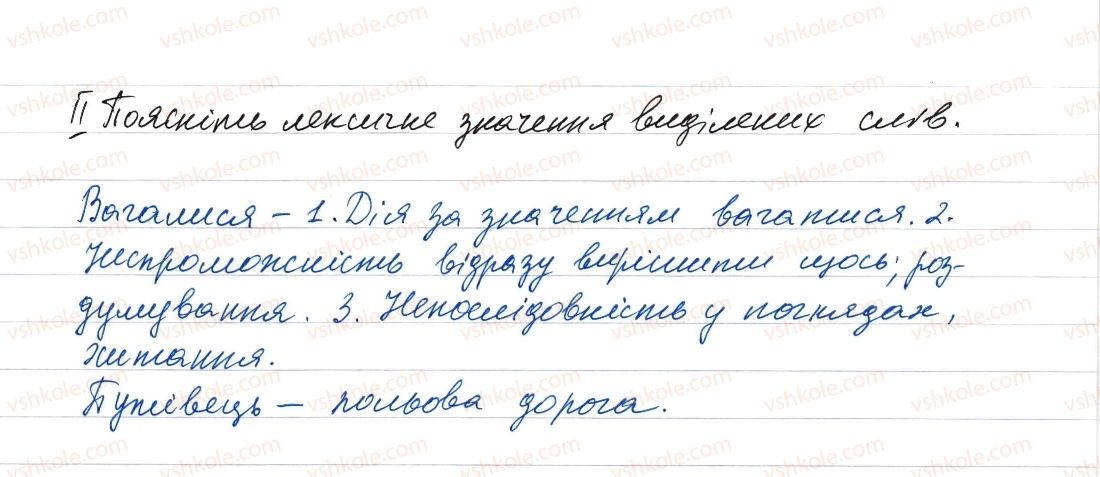 II Поясніть лексичне значення виділених слів.
Вагалися – 1. Дія за значенням вагатися. 2.
Неспроможність відразу вирішити щось; роз-
думування. 3. Непослідовність у поглядах,
хитання.
Путівець – польова дорога.